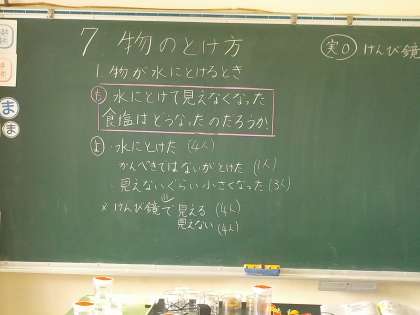 7 物のとけ方
実0 けんび鏡
1. 物が水にとけるとき
水にとけて見えなくなった
食塩はどうなったのだろうか
よ ・水にとけた (4人)
かんぺきではないがとけた (1人)
・見えないぐらい小さくなった (3人)
× けんび鏡で見える (4人)
見えない (4人)
ま
ま